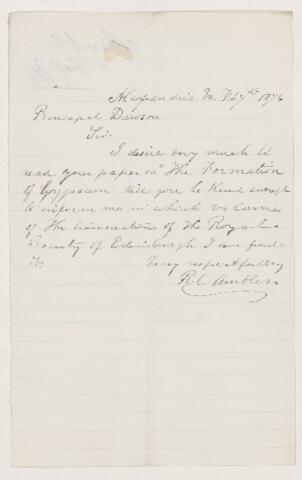 Ambler
Feb 7/76
Alexandria Va. Feby 7th 1876
Principal Dawson.
Sir
I desire very much to
read your paper on "The Formation
of Gypsum" Will you be kind enough
to inform me in which volume
of The transactions of The Royal
Society of Edinburgh I can find
it.
Very respectfully
R C Ambler